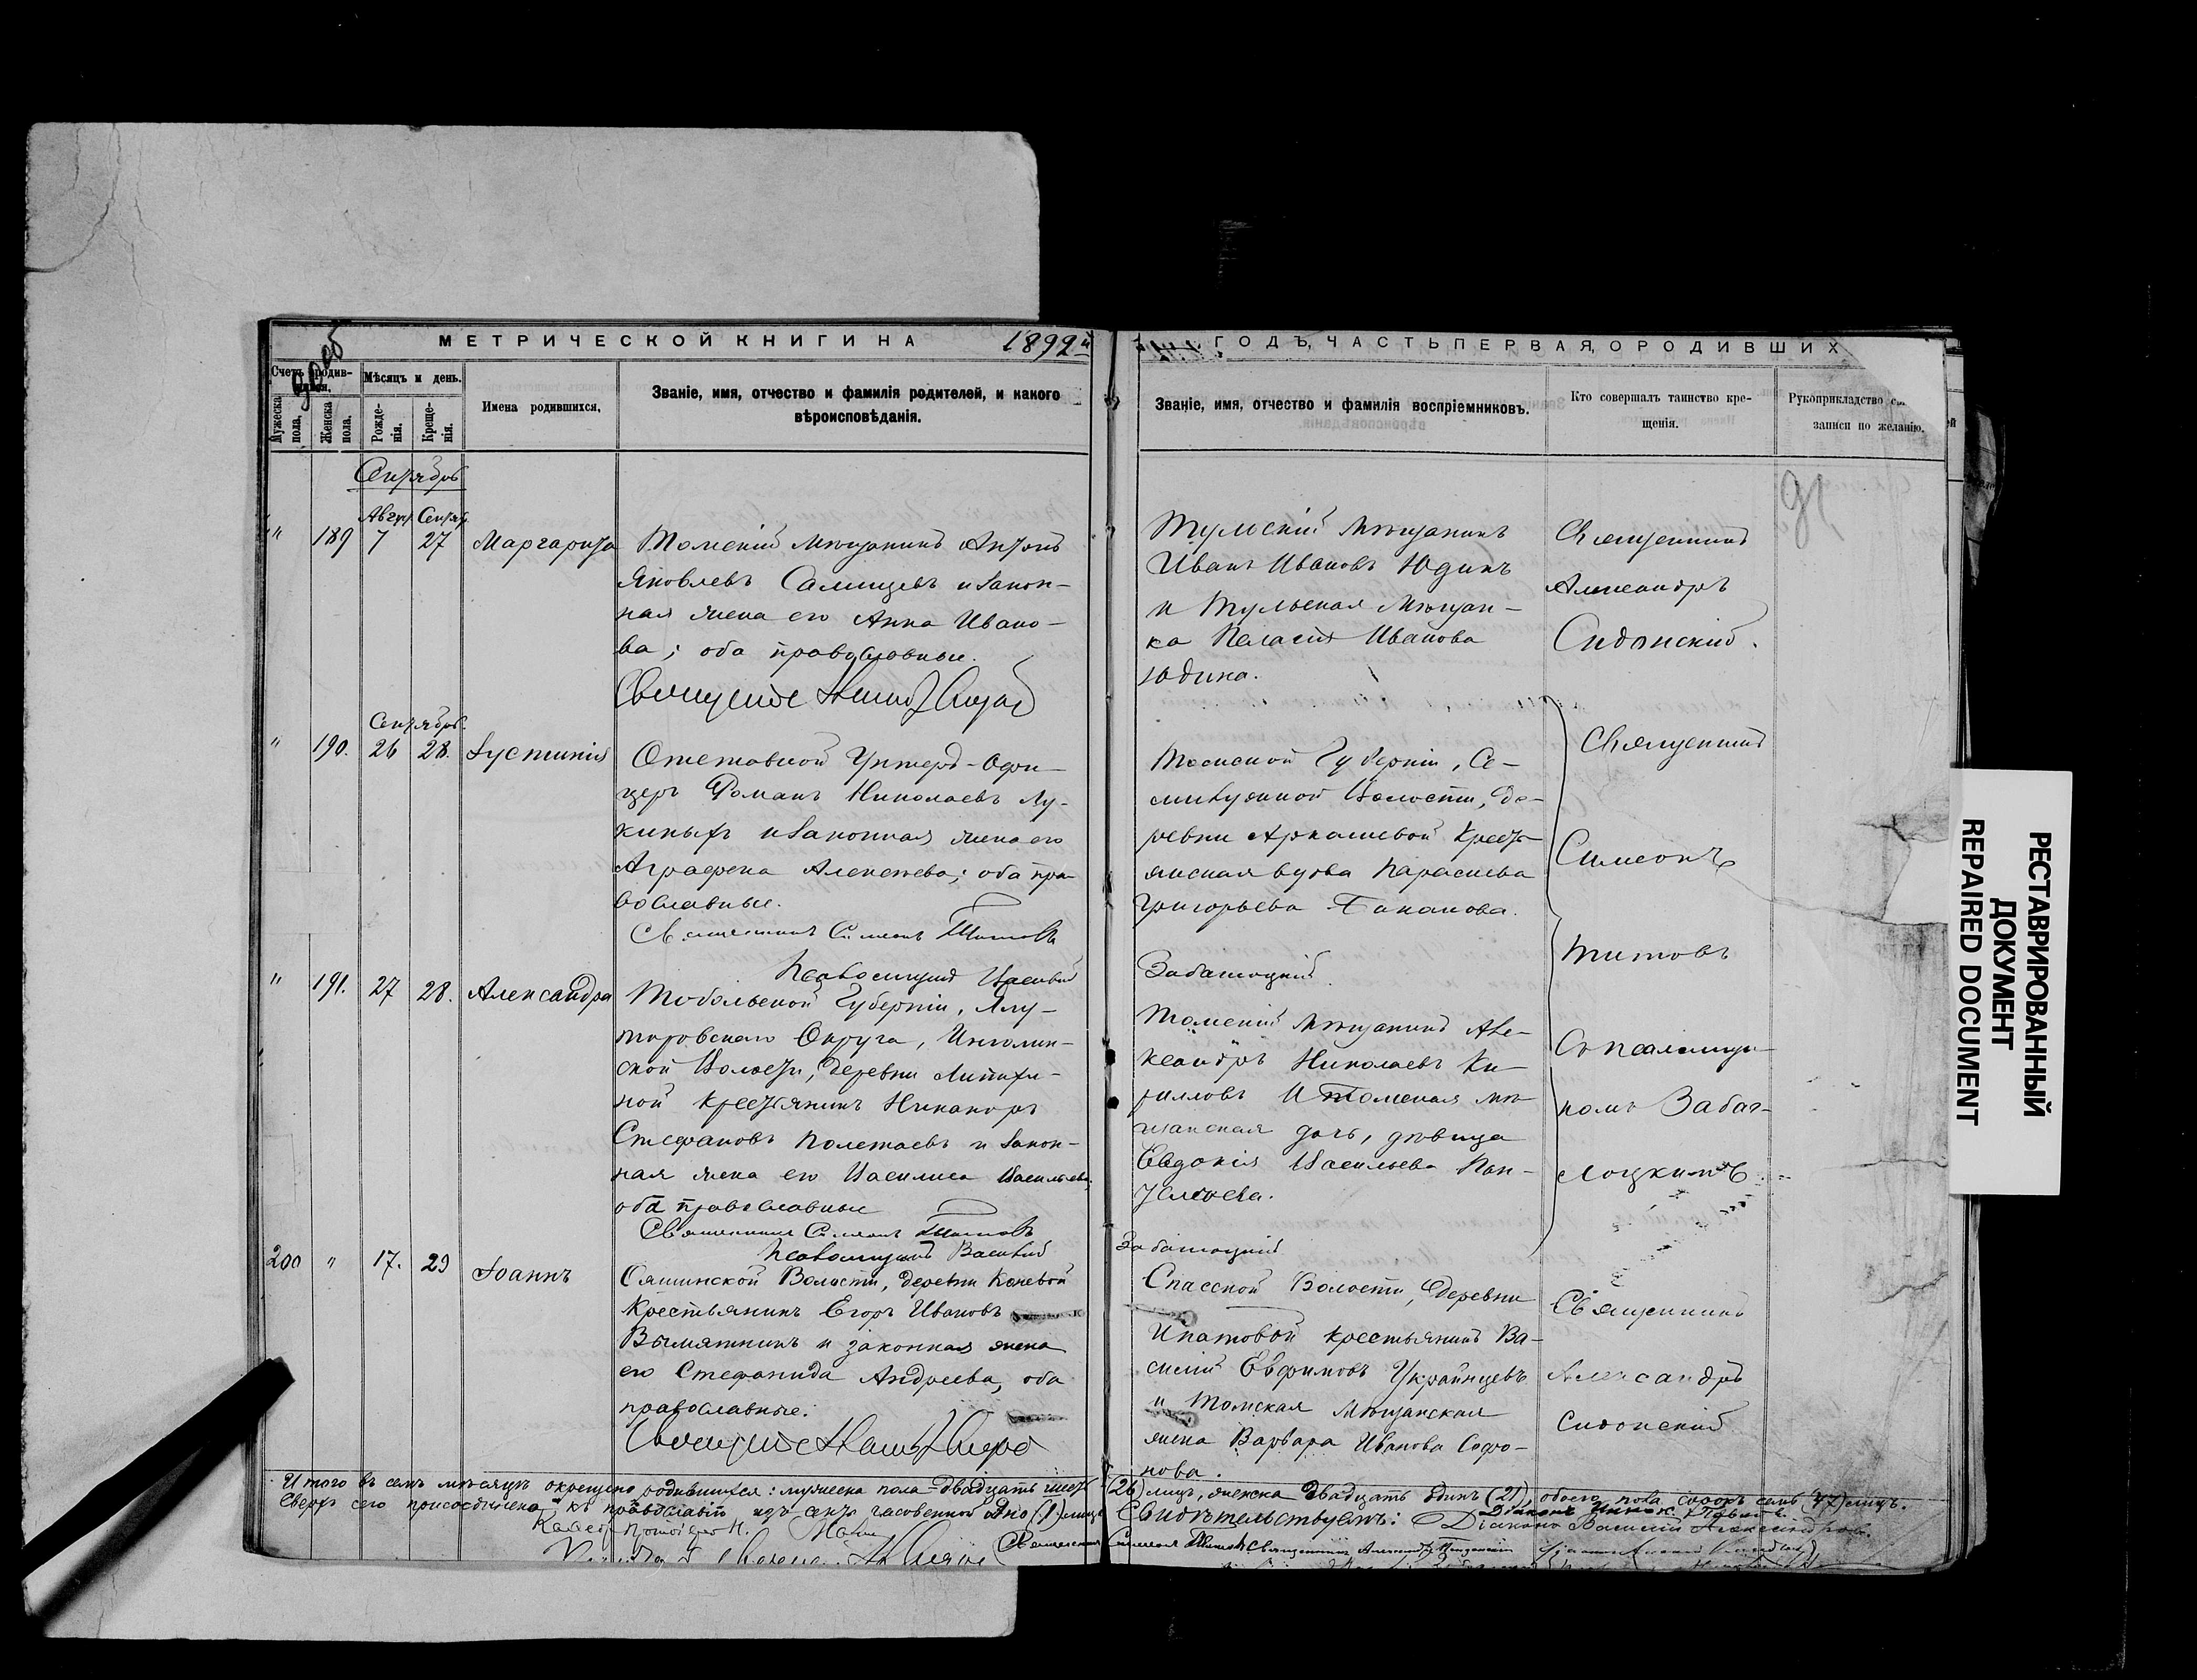 МЕТРИЧЕСКОЙ КНИГИ НА 1892
ГОДЪ, ЧАСТЬ ПЕРВАЯ, О РОДИВШИХ
Счетъ родив-
шихся.
Мѣсяцъ и день.
Мужеска пола.
Женска пола.
Рожде-
нія.
Креще-
нія.
Имена родившихся.
Званіе, имя, отчество и фамилія родителей, и какого
вѣроисповѣданія.
Званіе, имя, отчество и фамилія воспріемниковъ.
Кто совершалъ таинство кре-
щенія.
Рукоприкладство
записи по желанію.
Сентябрь
Авгус. Сентяб.
" 189 7 27 Маргарита
Томскій мѣщанинъ Антонъ
Яковлевъ и закон-
ная жена его Анна Ивано-
ва; оба православные.
Тульскій мѣщанинъ
Иванъ Ивановъ Юдинъ
и Тульская мѣщан-
ка Пелагія Иванова
Юдина.
Священникъ
Александръ
Сидонскій.
Сентябрь
" 190. 26 28. Іустинія
Отставной Унтеръ-Офи-
церъ Романъ Николаевъ Лу-
киныхъ и законная жена его
Аграфена Алексѣева; оба пра-
вославные.
Священникъ Симеонъ Титовъ
Псаломщикъ Василий
Томской Губерніи, Се-
милужной Волости, де-
ревни Аркашевой крестья-
янская вдова Параскева
Григорьева Баканова.
Забатоцкій
Священникъ
Симеонъ
Титовъ
Съ псаломщи-
комъ Забат-
лоцкимъ
" 191. 27 28. Александра
Тобольской Губерніи, Ялу-
торовскаго Округа, Ингалин-
ской Волости, деревни
ной крестьянинъ Никаноръ
Стефановъ Полетаевъ и закон-
ная жена его Василиса Васильева;
оба православные
Священникъ Симеонъ Титовъ
Псаломщикъ Василий
Томскій мѣщанинъ Але-
ксандръ Николаевъ Ки-
рилловъ и Томская мѣ-
щанская дочь, дѣвица
Евдокія Васильева Пан-
Забатоцкій
200 " 17. 29 Іоаннъ
Ояшинской Волости, деревни Каневой
крестьянинъ Егоръ Ивановъ
Вымятнинъ и законная жена
его Стефанида Андреева, оба
православные.
Спасской Волости, деревни
Ипатовой крестьянинъ Ва-
силій Евфимовъ Украинцевъ
и Томская мѣщанская
жена Варвара Иванова Софо-
нова.
Священникъ
Александръ
Сидонскій
Итого въ семъ мѣсяцѣ окрещено родившихся: мужеска пола двадцать шесть (26) лицъ, женска двадцать одинъ (21), обоего пола сорокъ семь (47) лицъ.
Сверхъ сего присоединено къ православію изъ секты часовенной одно (1) лицо
Свидѣтельствуемъ:
Діаконъ Василій Александровъ.
Священникъ Симеонъ Титовъ Священникъ Александръ Сидонскій
РЕСТАВРИРОВАННЫЙ
ДОКУМЕНТ
REPAIRED DOCUMENT